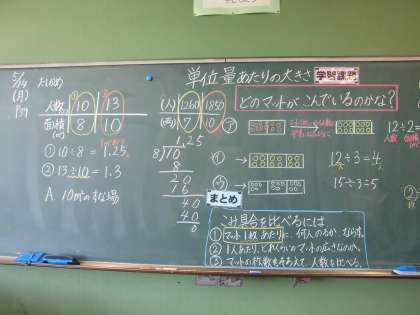 5/14
(月)
P.89
たしかめ
単位量あたりの大きさ
学習課題
人数(人) 10 13
面積(m²) 8 10
① 10÷8=1.25
② 13÷10=1.3
A. 10m²のすな場
(人) 1260 1850
(両) 7 10
1.25
8)10
8
20
16
40
40
0
どのマットがこんでいるのかな?
ア
イ
ウ
12÷3=4
15÷3=5
12÷2
人数 面積
まとめ
こみ具合を比べるには
① マット1枚あたりに、何人のるか、ならす。
② 1人あたり、どれくらいのマットの広さなのか。
③ マットの枚数をそろえて、人数を比べる。